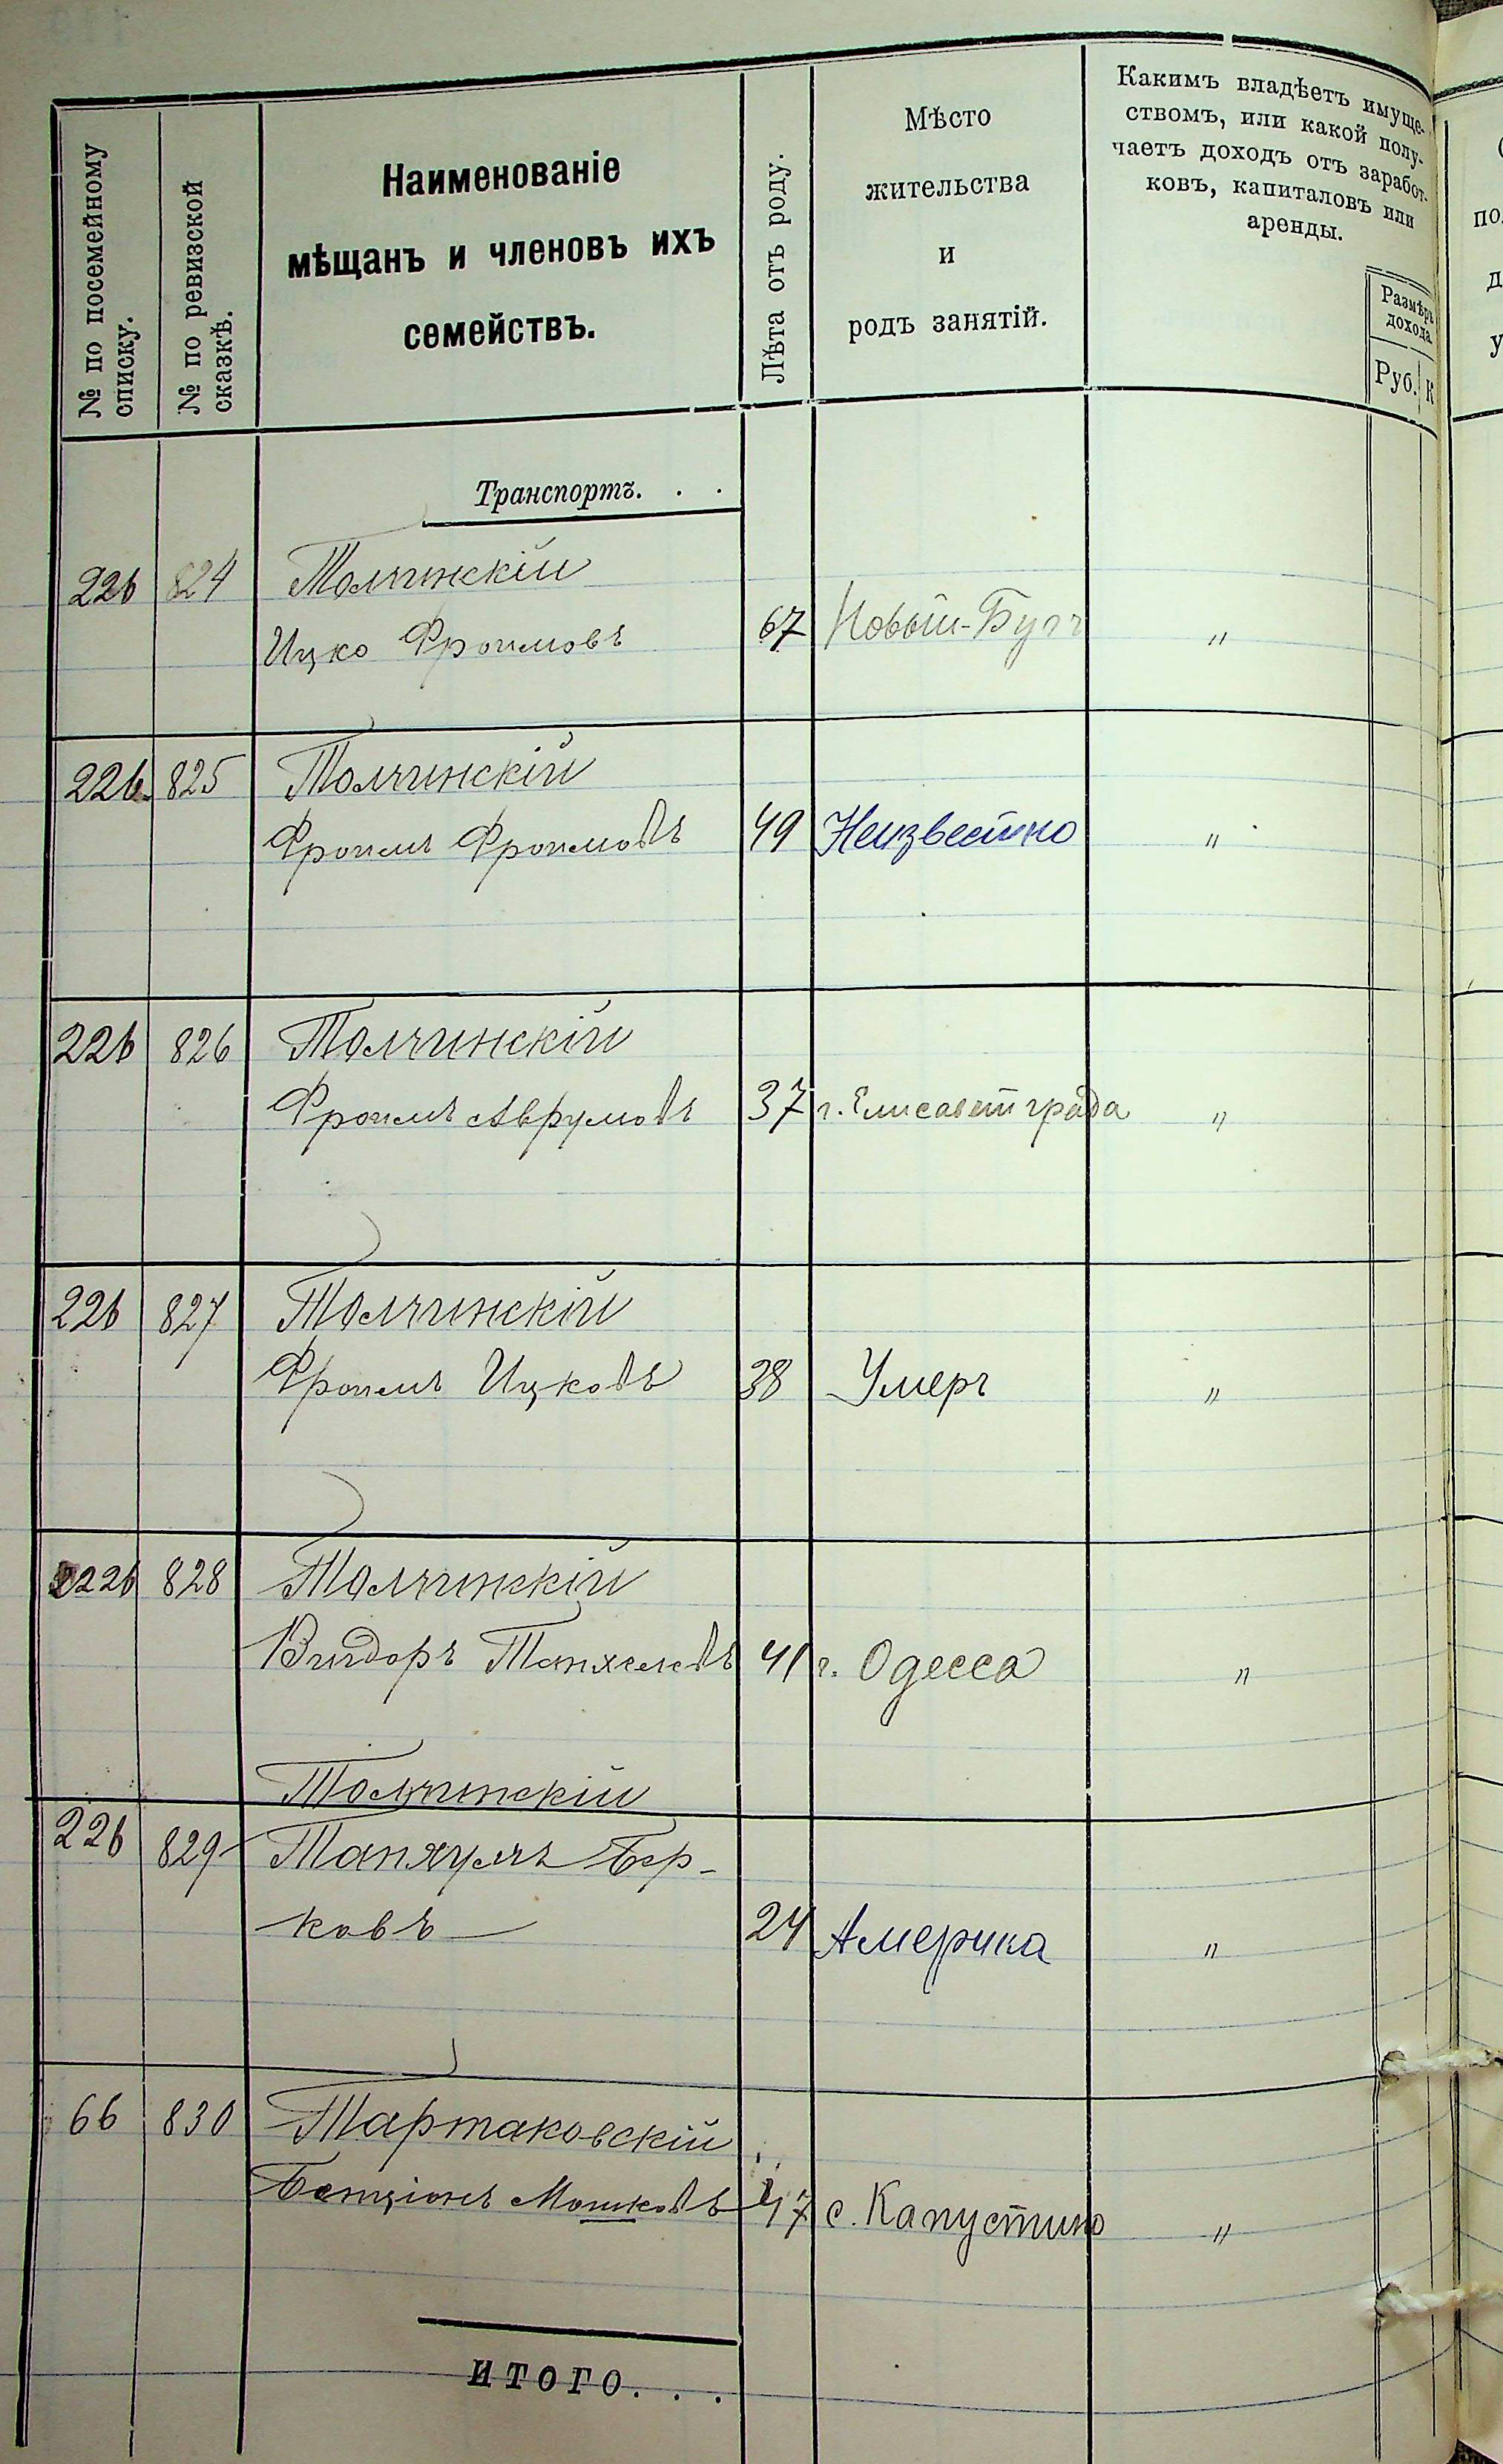 № по посемейному
списку.
№ по ревизской
сказкѣ.
Наименованіе
мѣщанъ и членовъ ихъ
семействъ.
Лѣта отъ роду.
Мѣсто
жительства
и
родъ занятій.
Какимъ владѣетъ имуще-
ствомъ, или какой полу-
чаетъ доходъ отъ заработ-
ковъ, капиталовъ или
аренды.
Размѣръ
дохода
Руб. К
Транспортъ. . .
226 824 Толчинскій
Ицко Фроимовъ 67 Новый-Бугъ "
226 825 Толчинскій
Фроимъ Фроимовъ 49 Неизвестно "
226 826 Толчинскій
Фроимъ Аврумовъ 37 г. Елисаветграда "
226 827 Толчинскій
Фроимъ Ицковъ 38 Умеръ "
226 828 Толчинскій
Вигдоръ Танхумовъ 41 г. Одесса "
Толчинскій
226 829 Танхумъ Бер-
ковъ 24 Америка "
66 830 Тартаковскій
Бенціонъ Мошковъ 47 с. Капустино "
ИТОГО. . .